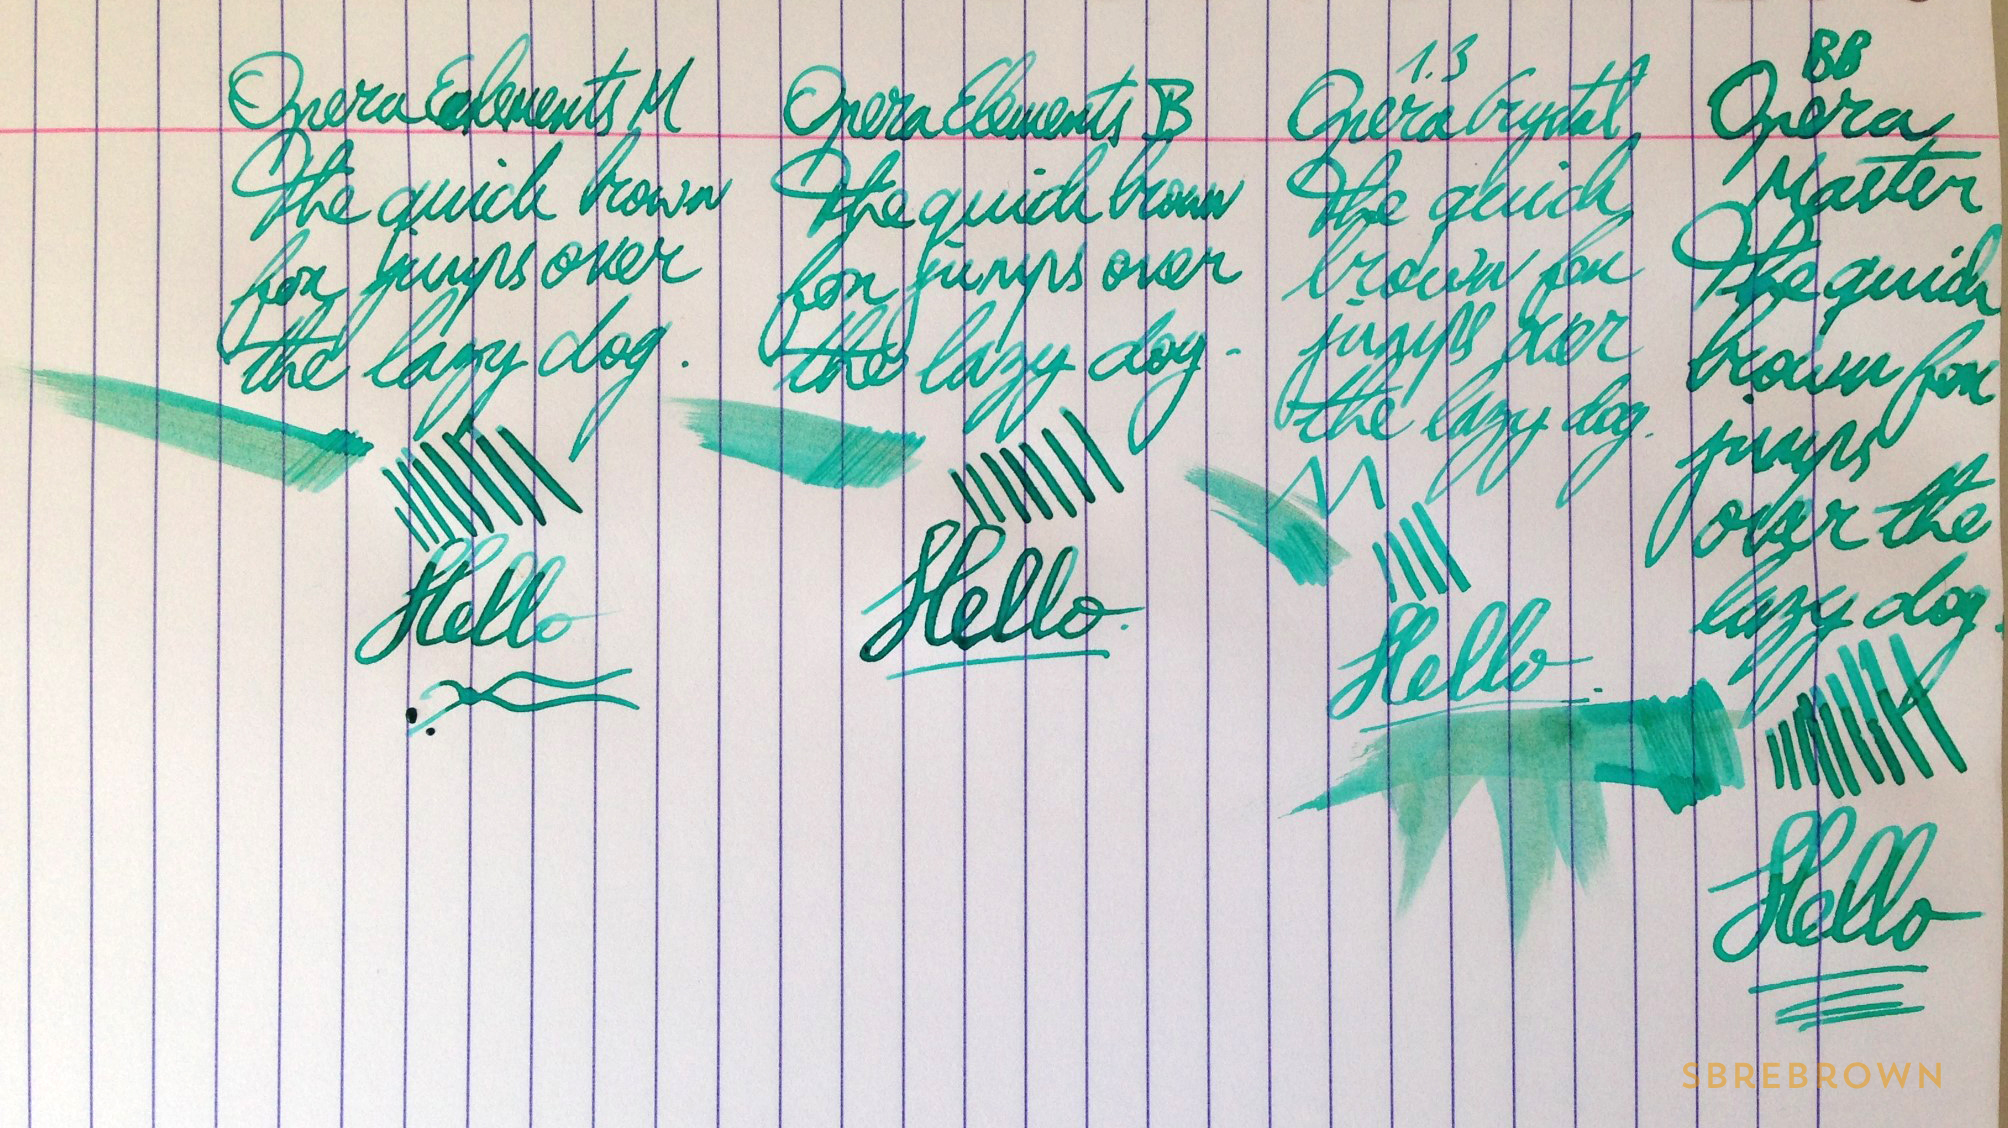 Opera Eelements M
The quick brown
fox jumps over
the lazy dog.
Hello
Opera Elements B
The quick brown
fox jumps over
the lazy dog.
Hello.
1.3
Opera Crystal
The quick
brown fox
jumps over
the lazy dog.
Hello.
BB
Opera
Master
The quick
brown fox
jumps
over the
lazy dog.
Hello
SBREBROWN